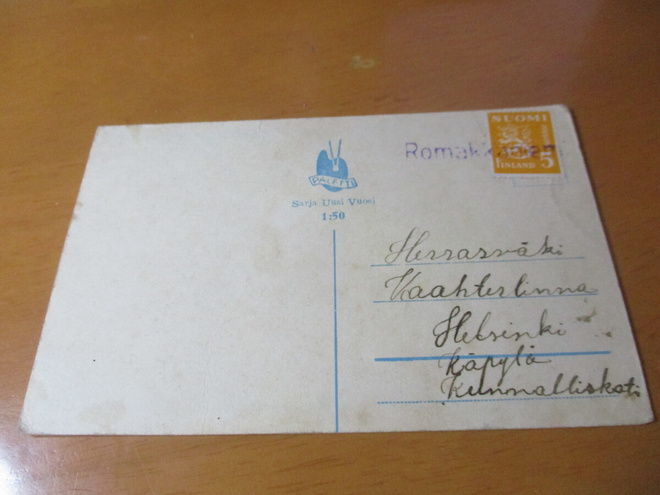 PALETTI
Sarja Uusi Vuosi
1:50
SUOMI
5
FINLAND
Herrasväki
Vaahterlinna
Helsinki
Käpylä
Kunnalliskoti